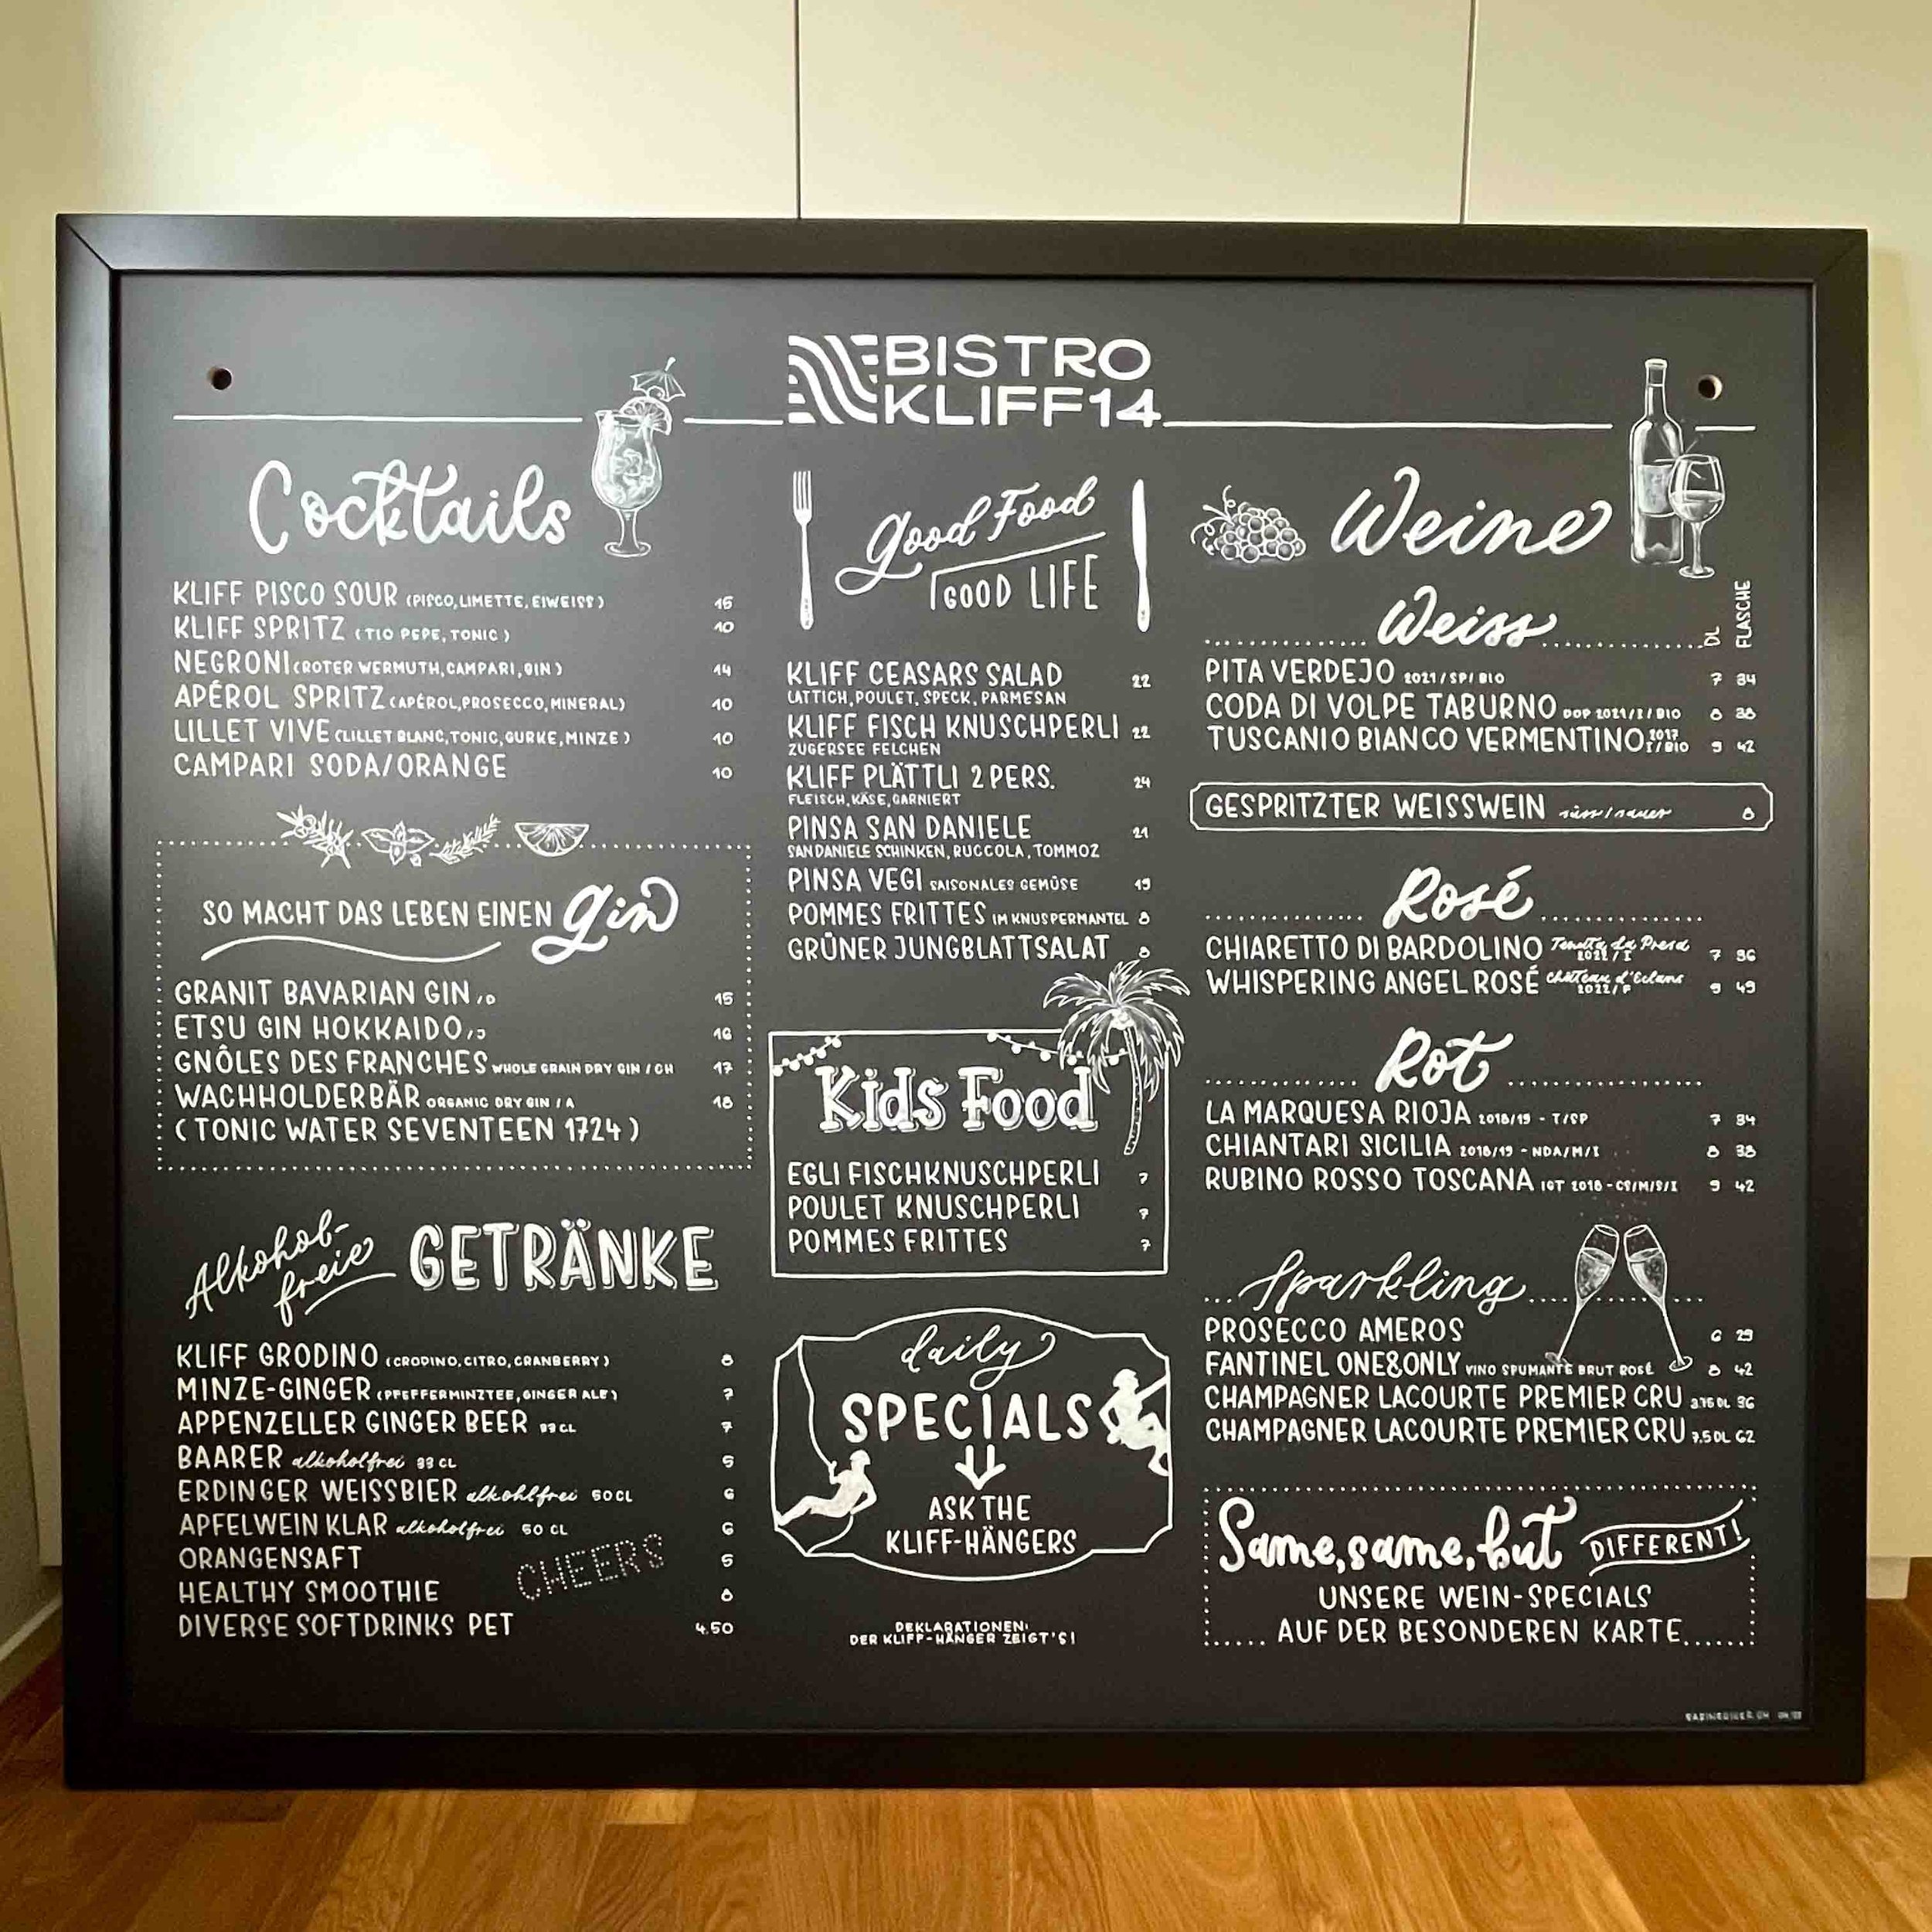 BISTRO
KLIFF14
Cocktails
KLIFF PISCO SOUR (PISCO, LIMETTE, EIWEISS) 15
KLIFF SPRITZ (TIO PEPE, TONIC) 10
NEGRONI (ROTER WERMUTH, CAMPARI, GIN) 14
APÉROL SPRITZ (APÉROL, PROSECCO, MINERAL) 10
LILLET VIVE (LILLET BLANC, TONIC, GURKE, MINZE) 10
CAMPARI SODA/ORANGE 10
SO MACHT DAS LEBEN EINEN Gin
GRANIT BAVARIAN GIN /D 15
ETSU GIN HOKKAIDO /J 16
GNÔLES DES FRANCHES WHOLE GRAIN DRY GIN / CH 17
WACHHOLDERBÄR ORGANIC DRY GIN / A 18
(TONIC WATER SEVENTEEN 1724)
Alkohol-
freie GETRÄNKE
KLIFF GRODINO (CRODINO, CITRO, CRANBERRY) 8
MINZE-GINGER (PFEFFERMINZTEE, GINGER ALE) 7
APPENZELLER GINGER BEER 33 CL 7
BAARER alkoholfrei 33 CL 5
ERDINGER WEISSBIER alkohlfrei 50 CL 6
APFELWEIN KLAR alkoholfrei 50 CL 6
ORANGENSAFT 5
HEALTHY SMOOTHIE 8
DIVERSE SOFTDRINKS PET 4.50
CHEERS
Good Food
GOOD LIFE
KLIFF CEASARS SALAD 22
LATTICH, POULET, SPECK, PARMESAN
KLIFF FISCH KNUSCHPERLI 22
ZUGERSEE FELCHEN
KLIFF PLÄTTLI 2 PERS. 24
FLEISCH, KÄSE, GARNIERT
PINSA SAN DANIELE 21
SAN DANIELE SCHINKEN, RUCCOLA, TOMMOZ
PINSA VEGI SAISONALES GEMÜSE 19
POMMES FRITTES IM KNUSPERMANTEL 8
GRÜNER JUNGBLATTSALAT 8
Kids Food
EGLI FISCHKNUSCHPERLI 7
POULET KNUSCHPERLI 7
POMMES FRITTES 7
daily
SPECIALS
ASK THE
KLIFF-HÄNGERS
DEKLARATIONEN:
DER KLIFF-HÄNGER ZEIGT'S!
Weine
Weiss DL FLASCHE
PITA VERDEJO 2021/SP/BIO 7 34
CODA DI VOLPE TABURNO DOP 2021/I/BIO 8 38
TUSCANIO BIANCO VERMENTINO 2017 I/BIO 9 42
GESPRITZTER WEISSWEIN süss/sauer 8
Rosé
CHIARETTO DI BARDOLINO Tenuta La Presa 2022/I 7 36
WHISPERING ANGEL ROSÉ Château d'Eclans 2022/F 9 49
Rot
LA MARQUESA RIOJA 2018/19 - T/SP 7 34
CHIANTARI SICILIA 2018/19 - NDA/M/I 8 38
RUBINO ROSSO TOSCANA IGT 2018 - CS/M/S/I 9 42
Sparkling
PROSECCO AMEROS 6 29
FANTINEL ONE&ONLY VINO SPUMANTE BRUT ROSÉ 8 42
CHAMPAGNER LACOURTE PREMIER CRU 3.75 DL 36
CHAMPAGNER LACOURTE PREMIER CRU 7.5 DL 62
Same, same, but DIFFERENT!
UNSERE WEIN-SPECIALS
AUF DER BESONDEREN KARTE